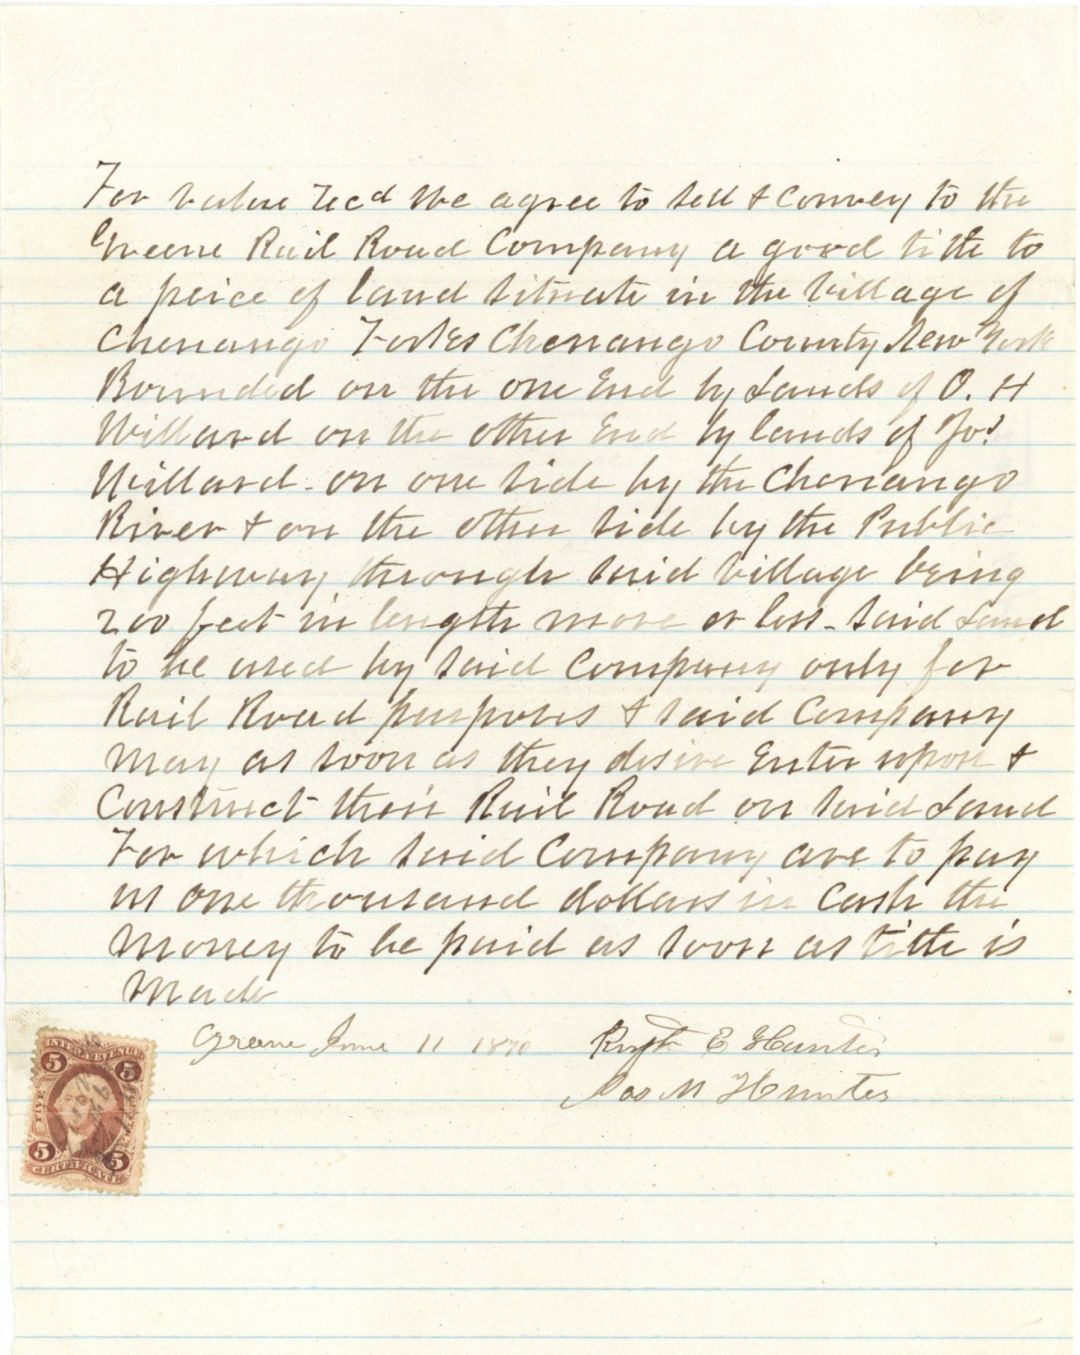 For value recd We agree to sell & Convey to the
Greene Rail Road Company a good title to
a peice of land situate in the village of
Chenango Forkes Chenango County New York
Bounded on the one End by Lands of O. H
Willard on the other End by lands of Jos
Willard - on one side by the Chenango
River & on the other side by the Public
Highway through said village being
200 feet in length more or less - said Land
to be used by said Company only for
Rail Road purposes & said Company
May as soon as they desire Enter upon &
Construct their Rail Road on said Land
For which said Company are to pay
us one thousand dollars in Cash the
Money to be paid as soon as title is
Made
Greene June 11 1870
E Hunter
Jas M Hunter
INTER. REVENUE
5 5
FIVE
5 5
CERTIFICATE